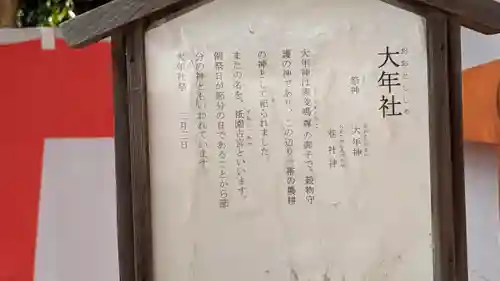 大年社
おおとししゃ
祭神 大年神
佐社神
大年神は素戔嗚尊の御子で、穀物守
護の神であり、この辺り一帯の農耕
の神として祀られました。
またの名を、祇園古宮といいます。
例祭日が節分の日であることから節
分の神ともいわれています。
大年社祭 二月三日